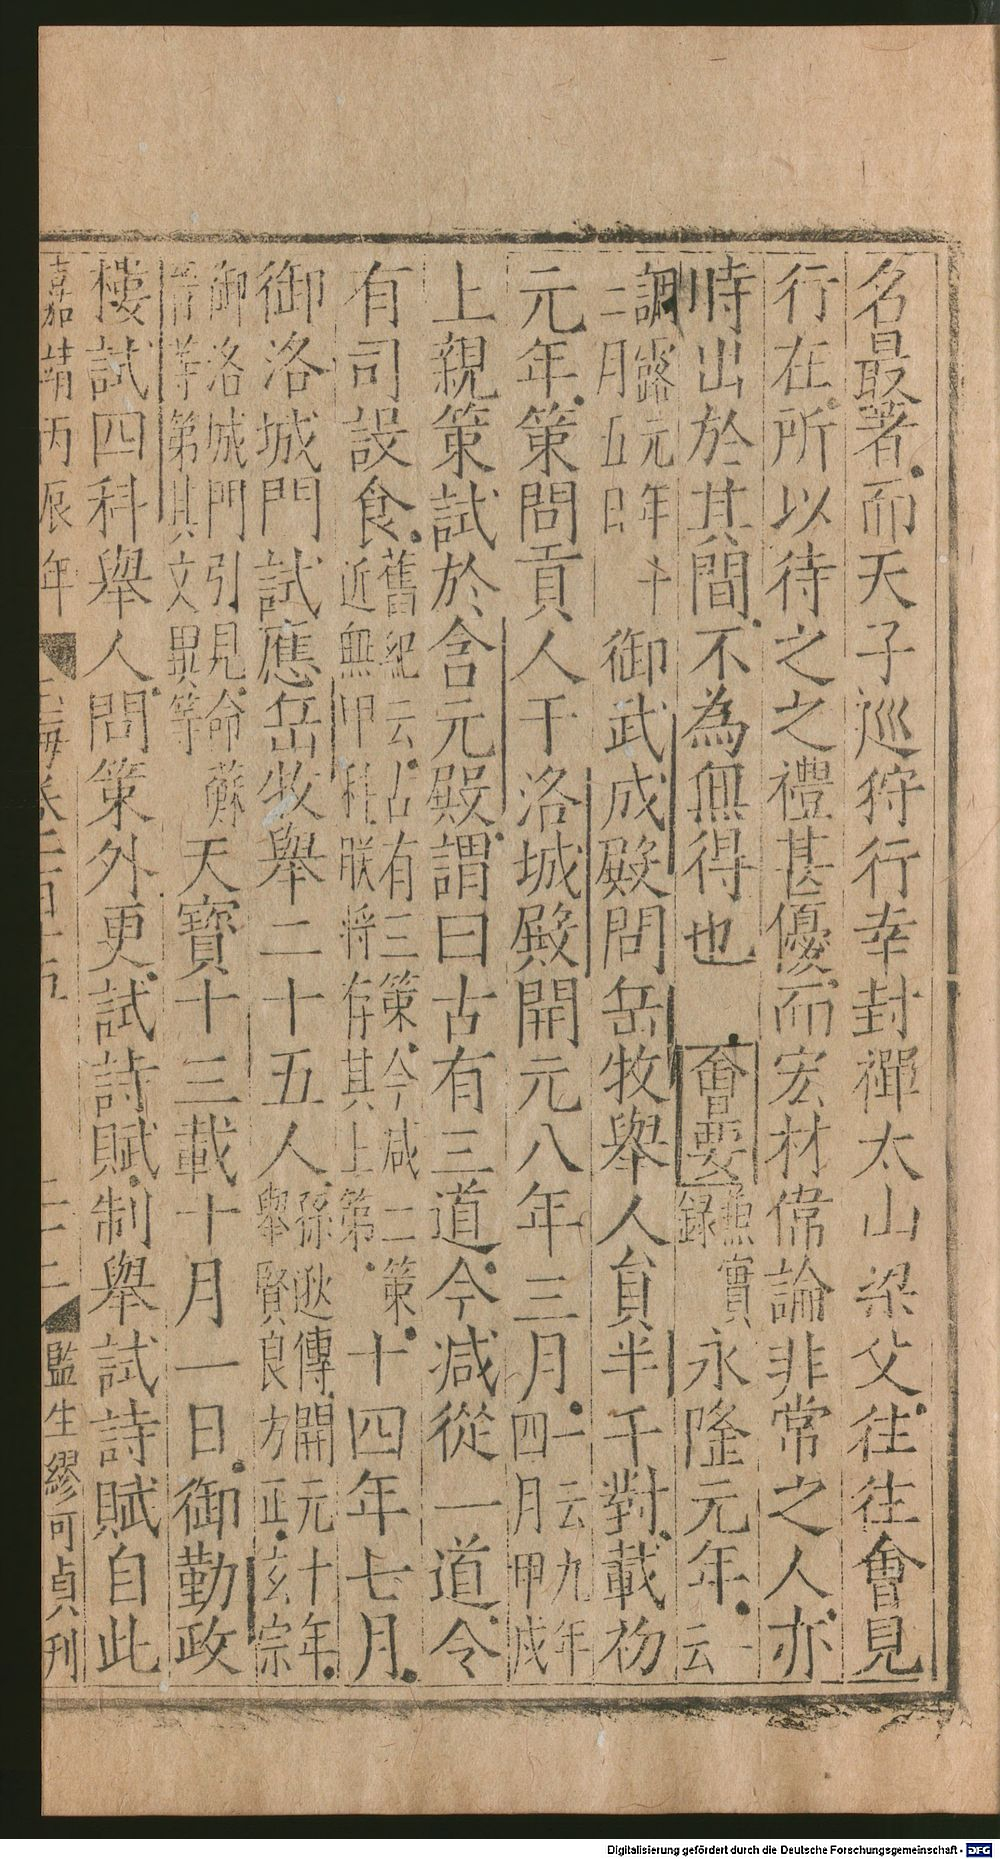 名最著而天子巡狩行幸封禪太山梁父往往會見
行在所以待之之禮甚優而宏材偉論非常之人亦
時出於其間不為無得也　會要 無實録 永隆元年一云
調露元年十二月五日 御武成殿問岳牧舉人貟半千對載初
元年策問貢人于洛城殿開元八年三月一云九年四月甲戌
上親策試於含元殿謂曰古有三道今减從一道令
有司設食舊紀云古有三策今减二策近無甲科朕將存其上第十四年七月
御洛城門試應岳牧舉二十五人孫逖傳開元十年舉賢良方正玄宗
御洛城門引見命蘇晋等第其文異等 天寳十三載十月一日御勤政
樓試四科舉人問策外更試詩賦制舉試詩賦自此
嘉靖丙辰年　玉海卷一百十五　二十二　監生繆可貞刊
Digitalisierung gefördert durch die Deutsche Forschungsgemeinschaft - DFG